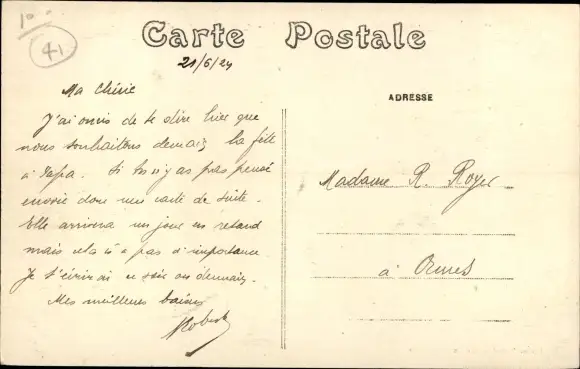 10
41
Carte Postale
21/6/24
ADRESSE
Ma chérie
J'ai omis de te dire hier que
nous souhaitons demain la fête
à Papa. Si tu n'y as pas pensé
envoie donc une carte de suite.
Elle arrivera un jour en retard
mais cela n'a pas d'importance
Je t'écrirai ce soir ou demain.
Mes meilleurs baisers
Robert
Madame R. Royer
à Ormes